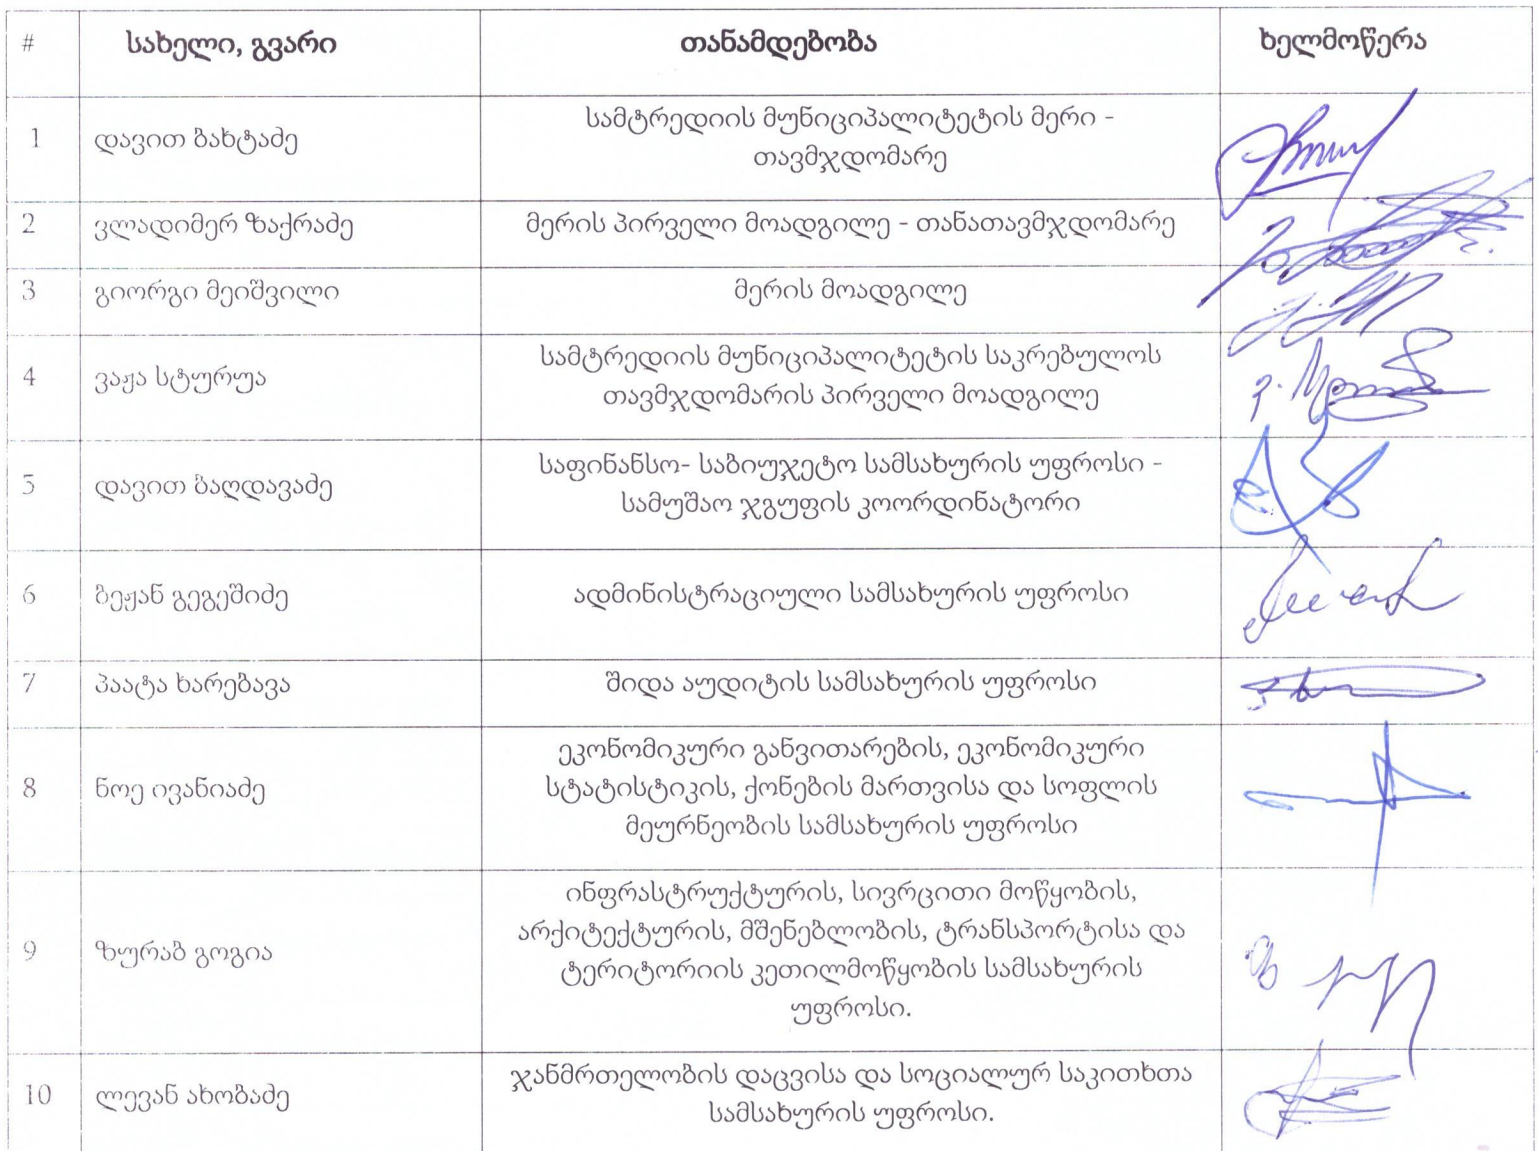 # სახელი, გვარი თანამდებობა ხელმოწერა
1 დავით ბახტაძე სამტრედიის მუნიციპალიტეტის მერი -
თავმჯდომარე
2 ვლადიმერ ზაქრაძე მერის პირველი მოადგილე - თანათავმჯდომარე
3 გიორგი მეიშვილი მერის მოადგილე
4 ვაჟა სტურუა სამტრედიის მუნიციპალიტეტის საკრებულოს
თავმჯდომარის პირველი მოადგილე
5 დავით ბაღდავაძე საფინანსო- საბიუჯეტო სამსახურის უფროსი -
სამუშაო ჯგუფის კოორდინატორი
6 ბეჟან გეგეშიძე ადმინისტრაციული სამსახურის უფროსი
7 პაატა ხარებავა შიდა აუდიტის სამსახურის უფროსი
8 ნოე ივანიაძე ეკონომიკური განვითარების, ეკონომიკური
სტატისტიკის, ქონების მართვისა და სოფლის
მეურნეობის სამსახურის უფროსი
9 ზურაბ გოგია ინფრასტრუქტურის, სივრცითი მოწყობის,
არქიტექტურის, მშენებლობის, ტრანსპორტისა და
ტერიტორიის კეთილმოწყობის სამსახურის
უფროსი.
10 ლევან ახობაძე ჯანმრთელობის დაცვისა და სოციალურ საკითხთა
სამსახურის უფროსი.